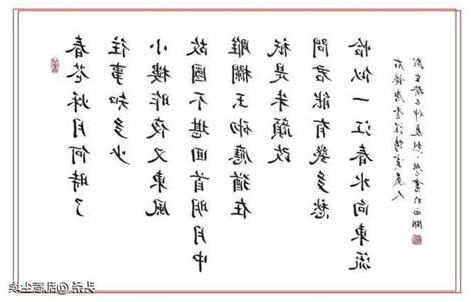 春花秋月何時了
往事知多少
小樓昨夜又東風
故國不堪回首明月中
雕欄玉砌應猶在
祇是朱顏改
問君能有幾多愁
恰似一江春水向東流
虞美人
头条@乱惹尘埃